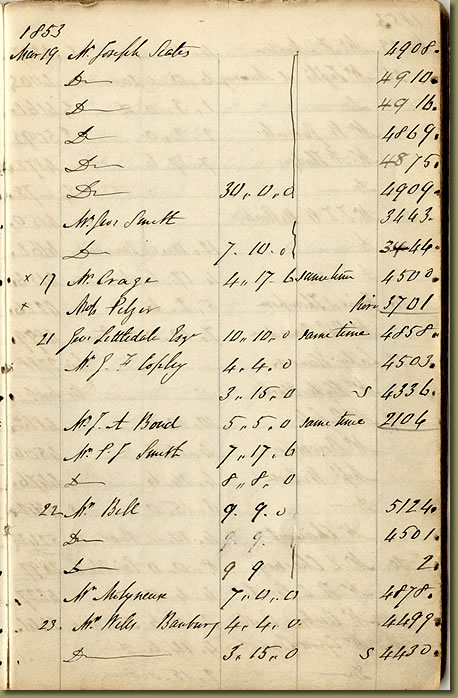 1853
Mar 19 Mr Joseph Scates 4908.
Do 4910.
Do 4916.
Do 4869.
Do 4875.
Do 30,,0,,0 4909.
Mr Geo Smith 3443.
Do 7.10.0 3444.
x 17 Mr Crage 4,,17.6 sametime 4500.
x Pelzer hire 3701
21 Geo Littledale Esqr 10,,10,,0 sametime 4858.
Mr J F Copley 4.4.0 4503.
3,,15,,0 S 4336.
Mr J. A Bond 5,,5,,0 sametime 2104
Mr S. J Smith 7,,17,,6
Do 8,,8,,0
22 Mr Bell 9.9.0 5124.
Do 9.9. 4501.
Do 9 9 2.
Mr Molyneux 7,,0,,0 4878.
23. Mr Wiles Banbury 4,,4,,0 4499.
Do 3,,15,,0 S 4430.